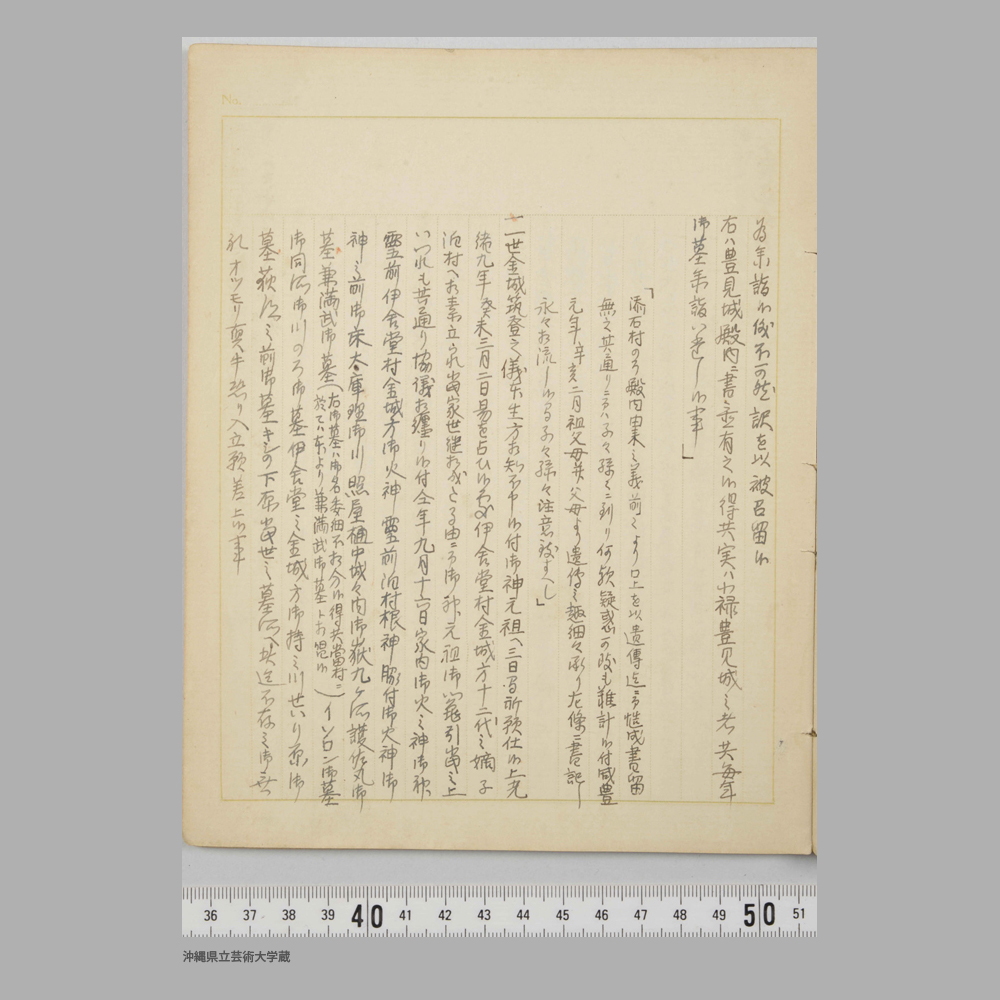 No.
為参詣候儀不可然訳を以被召留候
右ハ豊見城殿内ニ書並有之候得共実ハ小禄豊見城之者共毎年
御墓参詣いたし候事」
「添石村のろ殿内由来之義前々より口上を以遺傳迄ニ而慥成書留
無之其通りニ而ハ子々孫々ニ到り何歟疑惑可致も難計候付咸豊
元年辛亥二月祖父母并父母より遺傳之趣細々承り左條ニ書記し
永々相流し候間子々孫々注意致すべし」
一二世金城筑登之儀出生方相知不申候付御神元祖へ三日間祈願仕候上光
緒九年癸未三月二日易を占ひ候処伊舎堂村金城方十二代之嫡子
泊村へ相素立られ当家世継相成たる由ニ而御神元祖御篭引当之上
いつれも其通り協議相纏り候付仝年九月十六日家内御火之神御神
霊前伊舎堂村金城方御火神霊前泊村根神脇付御火神御
神之前御床大庫理御川照屋樋中城々内御嶽九ヶ所護佐丸御
墓兼満武御墓(右御墓ハ御名委細不相分候得共當村ニ
於てハ前より兼満武御墓ト相唱候)イソロン御墓
御同所御川のろ御墓伊舎堂之金城方御持之川せいり京御
墓荻道之前御墓キシの下原当世之墓所へ其迄不存之御無
礼オツモリ奠牛恐り入立願差上候事
36 37 38 39 40 41 42 43 44 45 46 47 48 49 50 51
沖縄県立芸術大学蔵